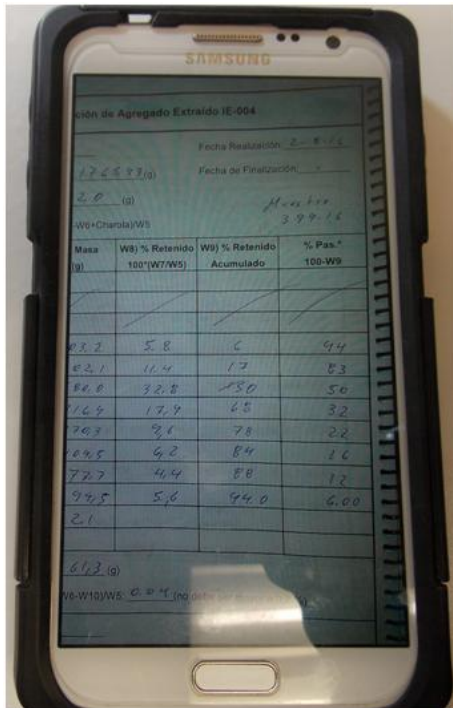 SAMSUNG
ción de Agregado Extraído IE-004
Fecha Realización: 2-8-16
(g) Fecha de Finalización:
2,0 (g)
Muestra
399-16
-W6+Charola)/W5
Masa W8) % Retenido W9) % Retenido % Pas.*
(g) 100*(W7/W5) Acumulado 100-W9
03.2 5.8 6 94
02,1 11.4 17 83
80.0 32.8 50 50
16,4 17,9 68 32
70,3 9,6 78 22
09,5 6,2 84 16
77,7 4,4 88 12
99,5 5,6 94.0 6.00
2,1
61,3 (g)
W6-W10)/W5: 0.04 (no debe ser